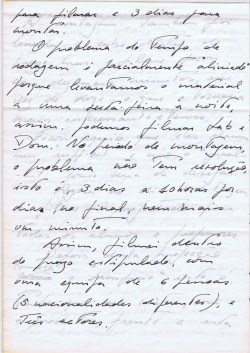 para filmar e 3 dias para
montar.
O problema do tempo de
rodagem é parcialmente aliviado
porque levantamos o material
a uma sexta-feira à noite,
assim podemos filmar Sab e
Dom. No período de montagem,
o problema não tem resolução,
isto é, 3 dias a 8 horas por
dia, no final, nem mais
um minuto.
Assim, filmei dentro
do prazo estipulado, com
uma equipa de 6 pessoas
(5 nacionalidades diferentes), e
três actores.